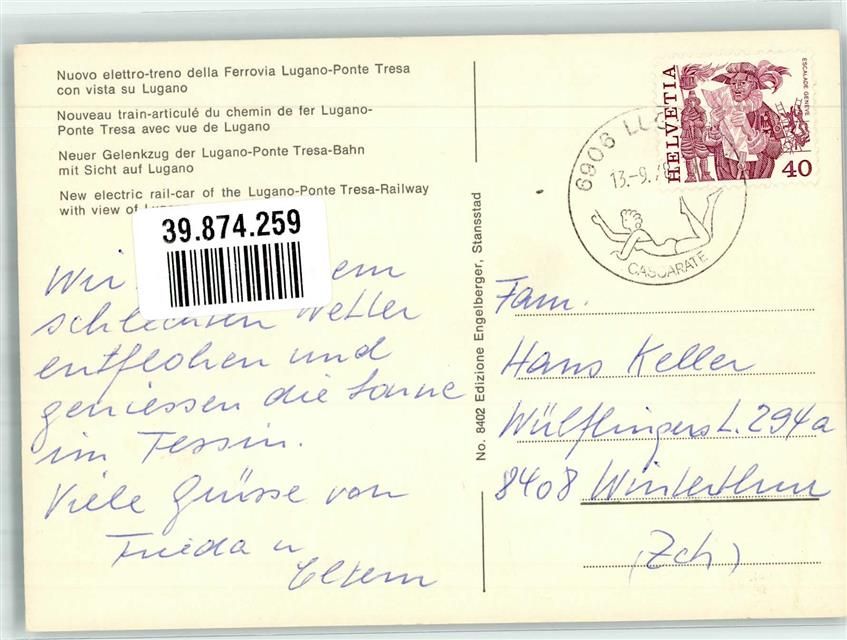 Nuovo elettro-treno della Ferrovia Lugano-Ponte Tresa
con vista su Lugano
Nouveau train-articulé du chemin de fer Lugano-
Ponte Tresa avec vue de Lugano
Neuer Gelenkzug der Lugano-Ponte Tresa-Bahn
mit Sicht auf Lugano
New electric rail-car of the Lugano-Ponte Tresa-Railway
with view of
39.874.259
Wir em
schlechten Wetter
entflohen und
geniessen die Sonne
im Tessin.
Viele Grüsse von
Frieda u
Eltern
No. 8402 Edizione Engelberger, Stansstad
6906 LU
13.-9.
CASSARATE
HELVETIA
ESCALADE GENÈVE
40
Fam.
Hans Keller
Wülflingerst. 294a
8408 Winterthur
(Zch)